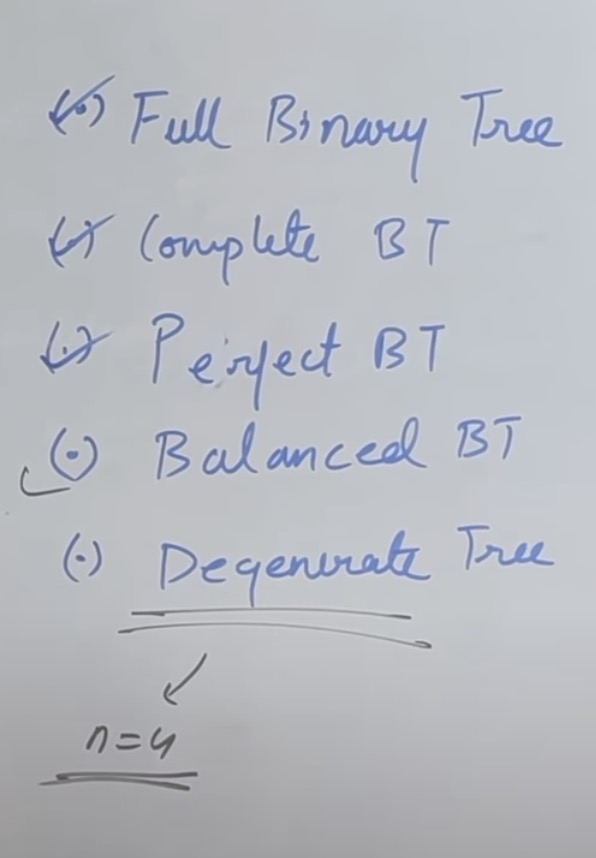 (•) Full Binary Tree
(•) Complete BT
(•) Perfect BT
(•) Balanced BT
(•) Degenerate Tree
n=4